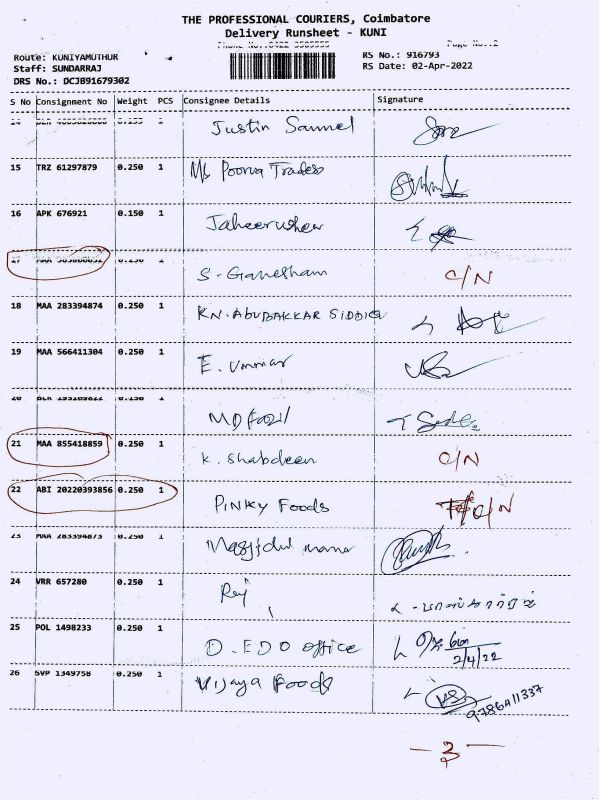 THE PROFESSIONAL COURIERS, Coimbatore
Delivery Runsheet - KUNI
Page No.:2
Route: KUNIYAMUTHUR RS No.: 916793
Staff: SUNDARRAJ RS Date: 02-Apr-2022
DRS No.: DCJB91679302
S No Consignment No Weight PCS Consignee Details Signature
1 Justin Samuel
15 TRZ 61297879 0.250 1 M/s Poorva Traders
16 APK 676921 0.150 1 Jaheerushen
17 MAA 1 S. Ganesham C/N
18 MAA 283394874 0.250 1 KN. ABUBAKKAR SIDDIQ
19 MAA 566411304 0.250 1 E. Ummar
20 1 MD Fazil
21 MAA 855418859 0.250 1 K. Shabdeen O/N
22 ABI 20220393856 0.250 1 PINKY Foods O/N
23 MAA 283394873 0.250 1 Masjidul
24 VRR 657280 0.250 1 Raj
25 POL 1498233 0.250 1 D. EDO office 2/4/22
26 SVP 1349758 0.250 1 Vijaya Foods 9786411337
- 3 -